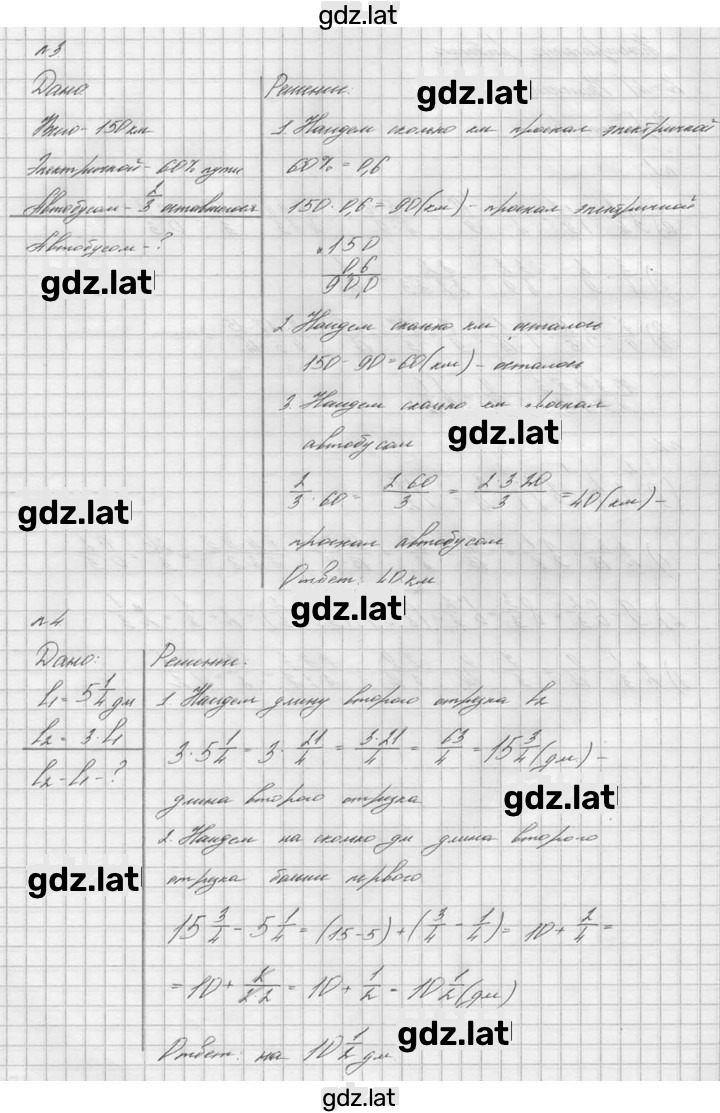 gdz.lat
№3
Дано:
Всего - 150 км
Электричкой - 60% пути
Автобусом - 2/3 оставшегося
Автобусом - ?
gdz.lat
gdz.lat
Решение:
gdz.lat
1. Найдем сколько км проехал электричкой
60% = 0,6
150 · 0,6 = 90 (км) - проехал электричкой
150
0,6
90,0
2. Найдем сколько км осталось
150 - 90 = 60 (км) - осталось
3. Найдем сколько км проехал
автобусом
gdz.lat
2/3 · 60 = 2·60/3 = 2·3·20/3 = 40 (км) -
проехал автобусом
Ответ: 40 км
gdz.lat
№4
Дано:
l₁ = 5 1/4 дм
l₂ = 3·l₁
l₂ - l₁ - ?
gdz.lat
Решение:
1. Найдем длину второго отрезка l₂
3 · 5 1/4 = 3 · 21/4 = 3·21/4 = 63/4 = 15 3/4 (дм) -
длина второго отрезка
gdz.lat
2. Найдем на сколько дм длина второго
отрезка больше первого
15 3/4 - 5 1/4 = (15-5) + (3/4 - 1/4) = 10 + 2/4 =
= 10 + 2/2·2 = 10 + 1/2 = 10 1/2 (дм)
Ответ: на 10 1/2 дм
gdz.lat
gdz.lat